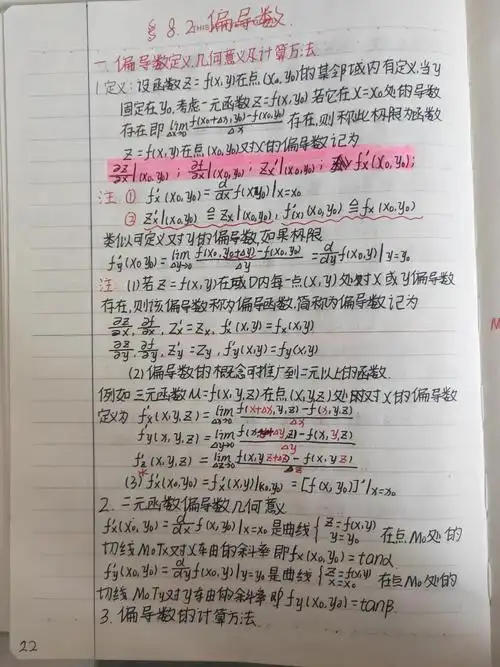 § 8.2 偏导数.
一. 偏导数定义, 几何意义及计算方法.
1.定义: 设函数 Z = f(x,y) 在点 (x₀, y₀) 的某邻域内有定义, 当 y
固定在 y₀, 考虑一元函数 Z = f(x, y₀) 若它在 X = X₀ 处的导数
存在即 lim_{Δx→0} [f(x₀+Δx, y₀) - f(x₀, y₀)]/Δx 存在, 则称此极限为函数
Z = f(x,y) 在点 (x₀, y₀) 对 X 的偏导数 记为
∂z/∂x|(x₀, y₀) ; ∂f/∂x|(x₀, y₀) ; Zx'|(x₀, y₀) ; f'x(x₀, y₀) ;
注 ① f'x(x₀, y₀) = d/dx f(x, y₀)|x=x₀
② Zx'|(x₀, y₀) ≙ Zx|(x₀, y₀), f'(x)(x₀, y₀) ≙ fx(x₀, y₀)
类似可定义对 y 的偏导数, 如果极限
f'y(x₀, y₀) = lim_{Δy→0} [f(x₀, y₀+Δy) - f(x₀, y₀)]/Δy = d/dy f(x₀, y)|y=y₀
注 (1) 若 Z = f(x,y) 在域 D 内每一点 (x, y) 处对 X 或 y 偏导数
存在, 则该偏导数称为偏导函数, 简称为偏导数 记为
∂z/∂x, ∂f/∂x, Z'x = Zx, f'x(x,y) = fx(x,y)
∂z/∂y, ∂f/∂y, Z'y = Zy, f'y(x,y) = fy(x,y)
(2) 偏导数的概念可推广到二元以上的函数.
例如 三元函数 u = f(x,y,z) 在点 (x,y,z) 处对 X 的偏导数
定义为 f'x(x,y,z) = lim_{Δx→0} [f(x+Δx, y, z) - f(x,y,z)]/Δx
f'y(x,y,z) = lim_{Δy→0} [f(x, y+Δy, z) - f(x,y,z)]/Δy
f'z(x,y,z) = lim_{Δz→0} [f(x, y, z+Δz) - f(x,y,z)]/Δz
(3) f'x(x₀, y₀) = f'x(x,y)|(x₀, y₀) = [f(x, y₀)]'|x=x₀
2. 二元函数偏导数几何意义
f'x(x₀, y₀) = d/dx f(x, y₀)|x=x₀ 是曲线 { z=f(x,y) y=y₀ 在点 M₀ 处的
切线 M₀Tx 对 X 轴的斜率 即 fx(x₀, y₀) = tanα.
f'y(x₀, y₀) = d/dy f(x₀, y)|y=y₀ 是曲线 { z=f(x,y) x=x₀ 在点 M₀ 处的
切线 M₀Ty 对 y 轴的斜率 即 fy(x₀, y₀) = tanβ.
3. 偏导数的计算方法
22